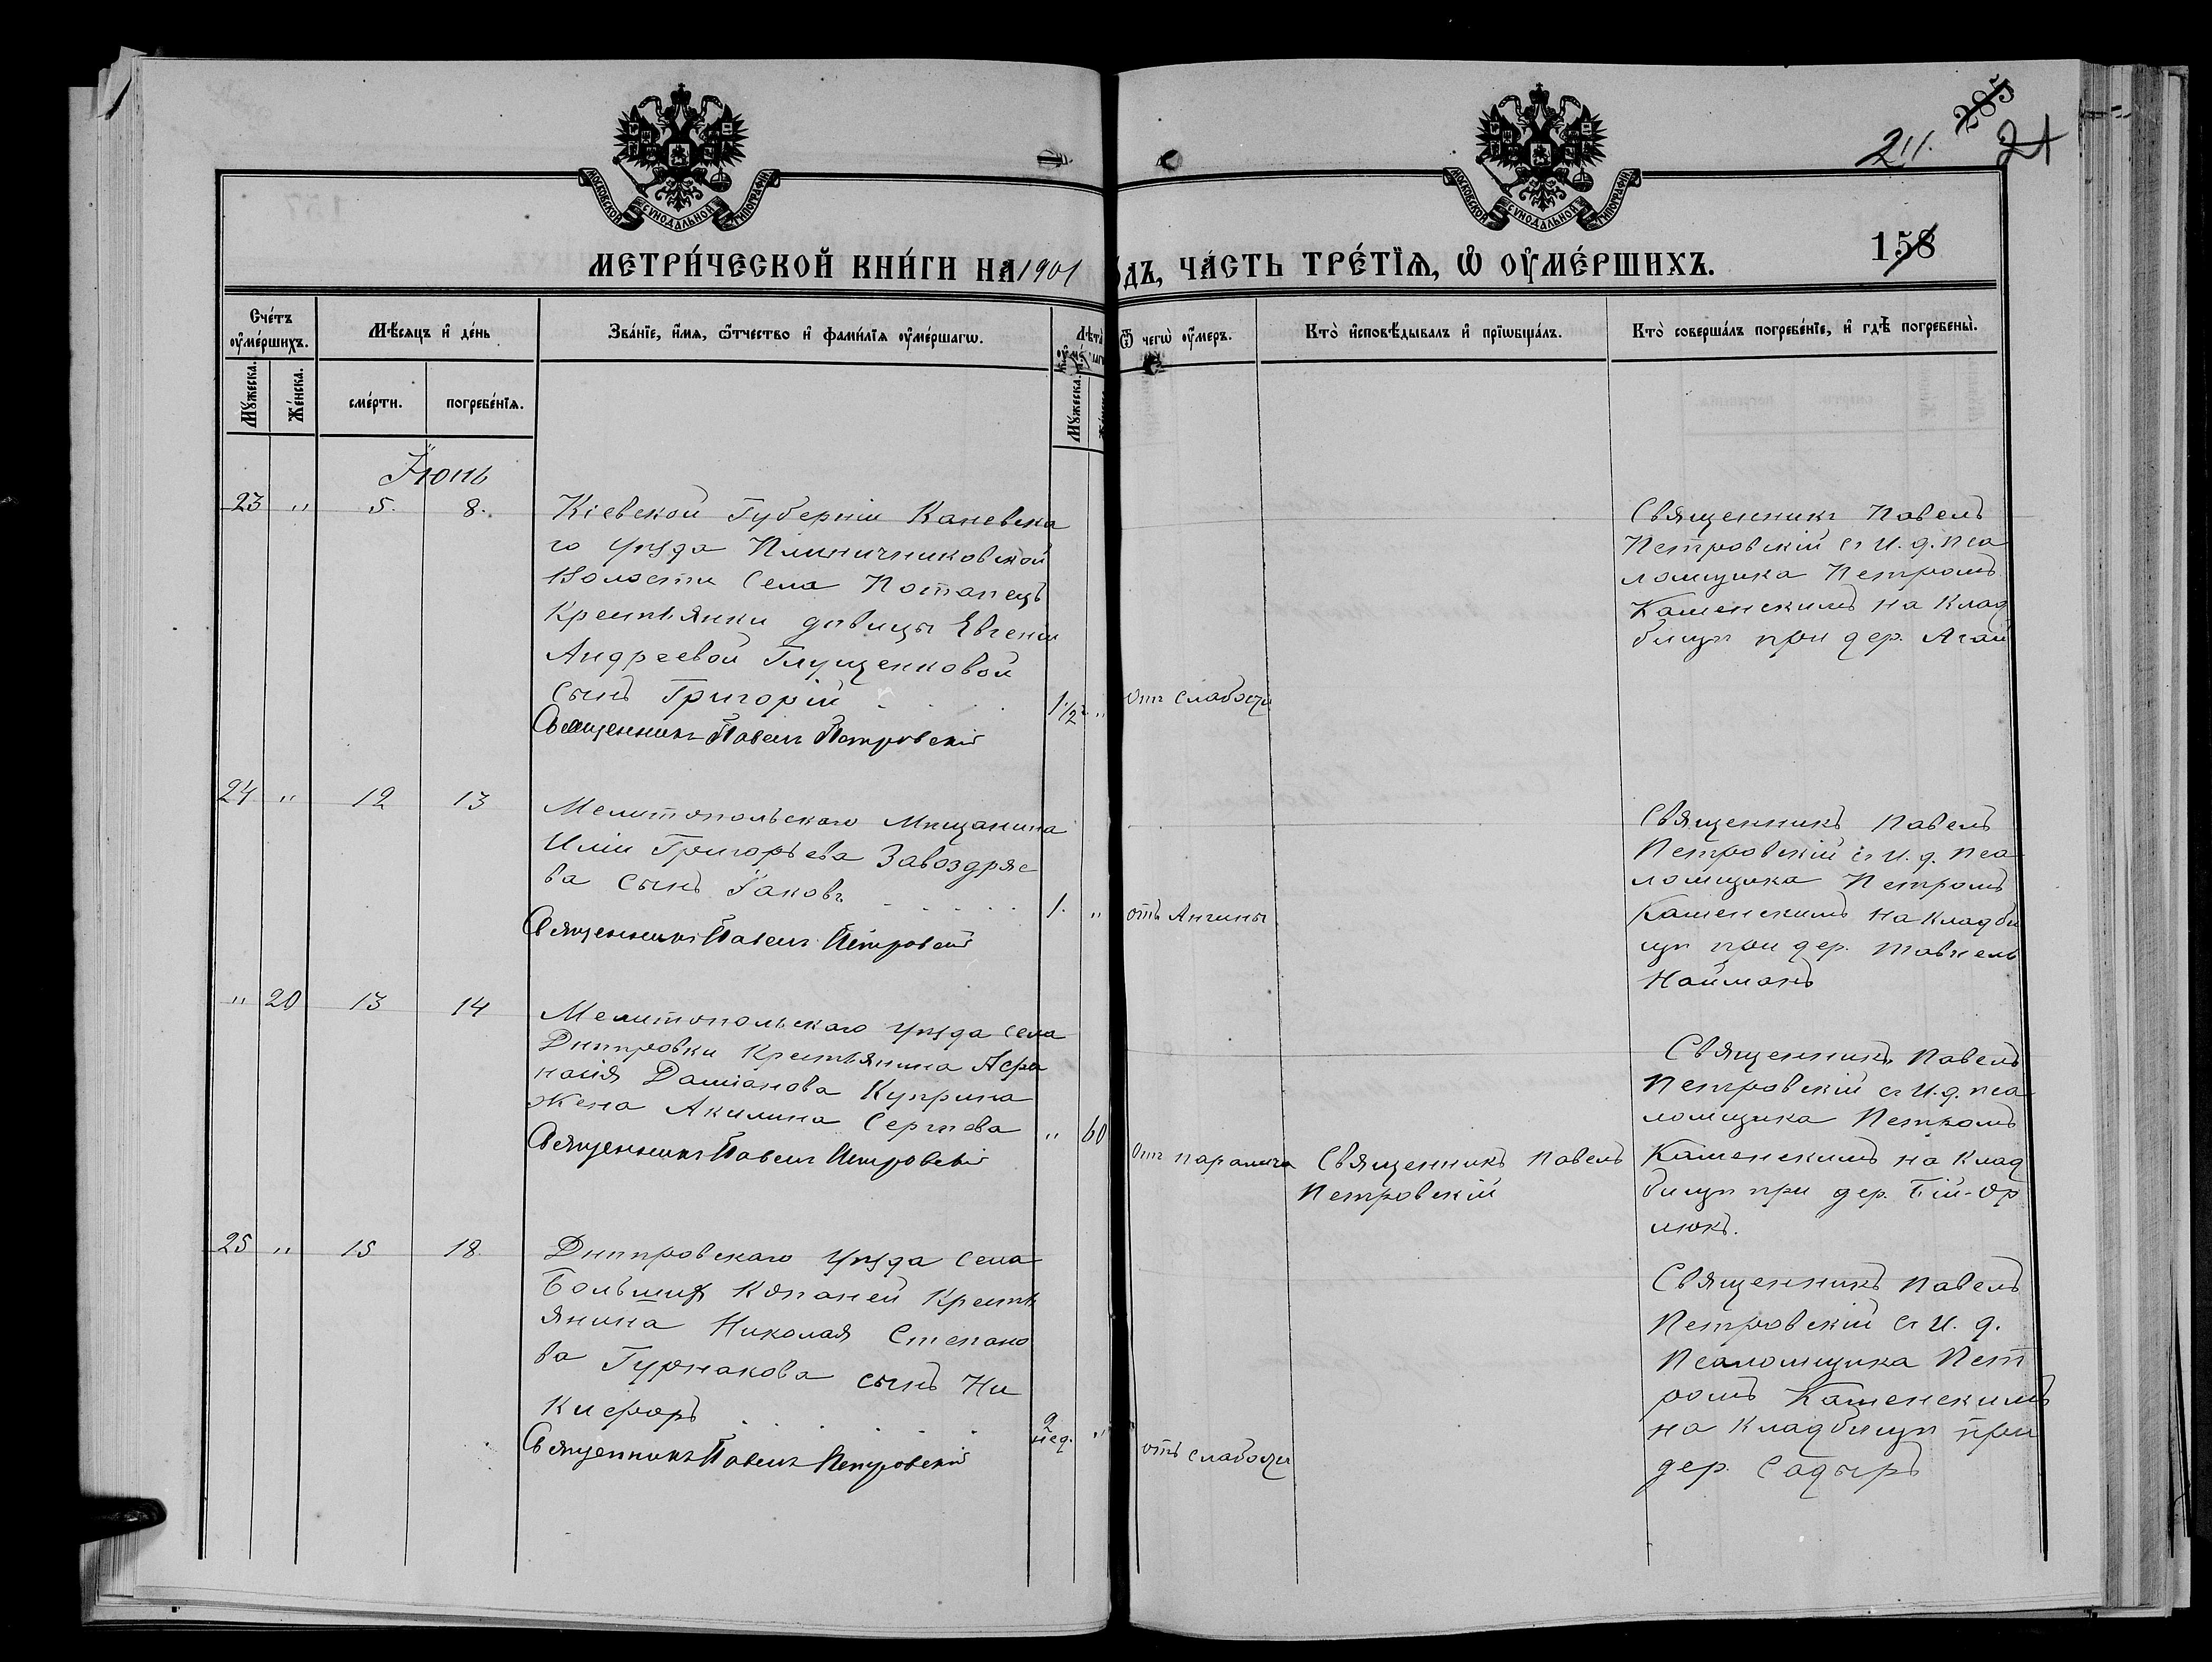 285
24.
24
МОСКОВСКОЙ СѴНОДАЛЬНОЙ ТИПОГРАФІИ
МОСКОВСКОЙ СѴНОДАЛЬНОЙ ТИПОГРАФІИ
158
МЕТРИ́ЧЕСКОЙ КНИ́ГИ НА 1901
ДЪ, ЧА́СТЬ ТРЕ́ТІѦ, Ѽ ОУ҆МЕ́РШИХЪ.
Сче́тъ оу҆ме́ршихъ.
Мѣ́сяцъ и҆ де́нь
Зва́ніе, и҆́мя, ѻ҆́тчество и҆ фами́лія оу҆ме́ршагѡ.
Лѣта
Ѿ чегѡ̀ оу҆́меръ.
Кто̀ и҆сповѣ́дывалъ и҆ пріѡбща́лъ.
Кто̀ соверша́лъ погребе́ніе, и҆ гдѣ̀ погребены̀.
Мꙋ́жеска.
Же́нска.
сме́рти.
погребе́нія.
Мꙋ́жеска.
Іюнь
23 " 5. 8.
Кіевской Губерніи Каневска
го уѣзда Пшиничниковской
Волости Села Потапецъ
Крестьянки дѣвицы Евгеніи
Андреевой Глущенковой
сынъ Григорій . . . . 1 1/2 г. "
Священникъ Павелъ Петровскій
отъ слабости
Священникъ Павелъ
Петровскій съ И. д. пса
ломщика Петромъ
Каменскимъ на Клад
бищѣ при дер. Агай
24 " 12 13
Мелитопольскаго Мѣщанина
Иліи Григорьева Завоздряе
ва сынъ Іаковъ . . . . . 1. "
Священникъ Павелъ Петровскій
отъ Ангины
Священникъ Павелъ
Петровскій съ И. д. пса
ломщика Петромъ
Каменскимъ на Кладби
щѣ при дер. Тавкель
Найманъ
" 20 13 14
Мелитопольскаго уѣзда села
Днѣпровки Крестьянина Афа
насія Даміанова Куприна
жена Акилина Сергѣева " 60
Священникъ Павелъ Петровскій
отъ паралича
Священникъ Павелъ
Петровскій
Священникъ Павелъ
Петровскій съ И. д. пса
ломщика Петромъ
Каменскимъ на Клад
бищѣ при дер. Бій-Ор
люкъ.
25 " 15 18
Днѣпровскаго уѣзда Села
Большихъ Копаней Кресть
янина Николая Степано
ва Гурнакова сынъ Ни
кифоръ . . . . . 2 нед. "
Священникъ Павелъ Петровскій
отъ слабости
Священникъ Павелъ
Петровскій съ И. д.
Псаломщика Пет
ромъ Каменскимъ
на Кладбищѣ при
дер. Садыръ